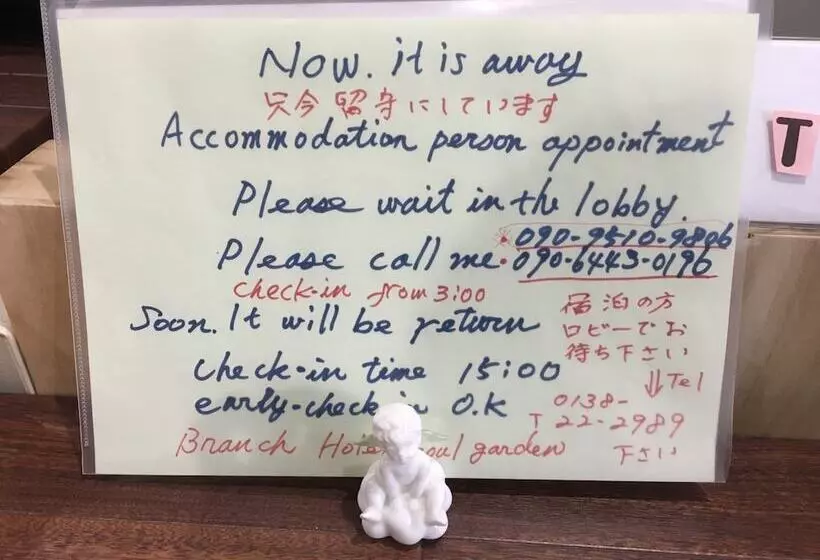 Now. it is away
只今留守にしています
Accommodation person appointment
Please wait in the lobby.
090-9510-9806
Please call me・090-6443-0196
check-in from 3:00
Soon. It will be return
宿泊の方
ロビーでお
待ち下さい
check-in time 15:00
⇓Tel
early-check in O.K
0138-
22-2989
下さい
Branch Hotel garden
T